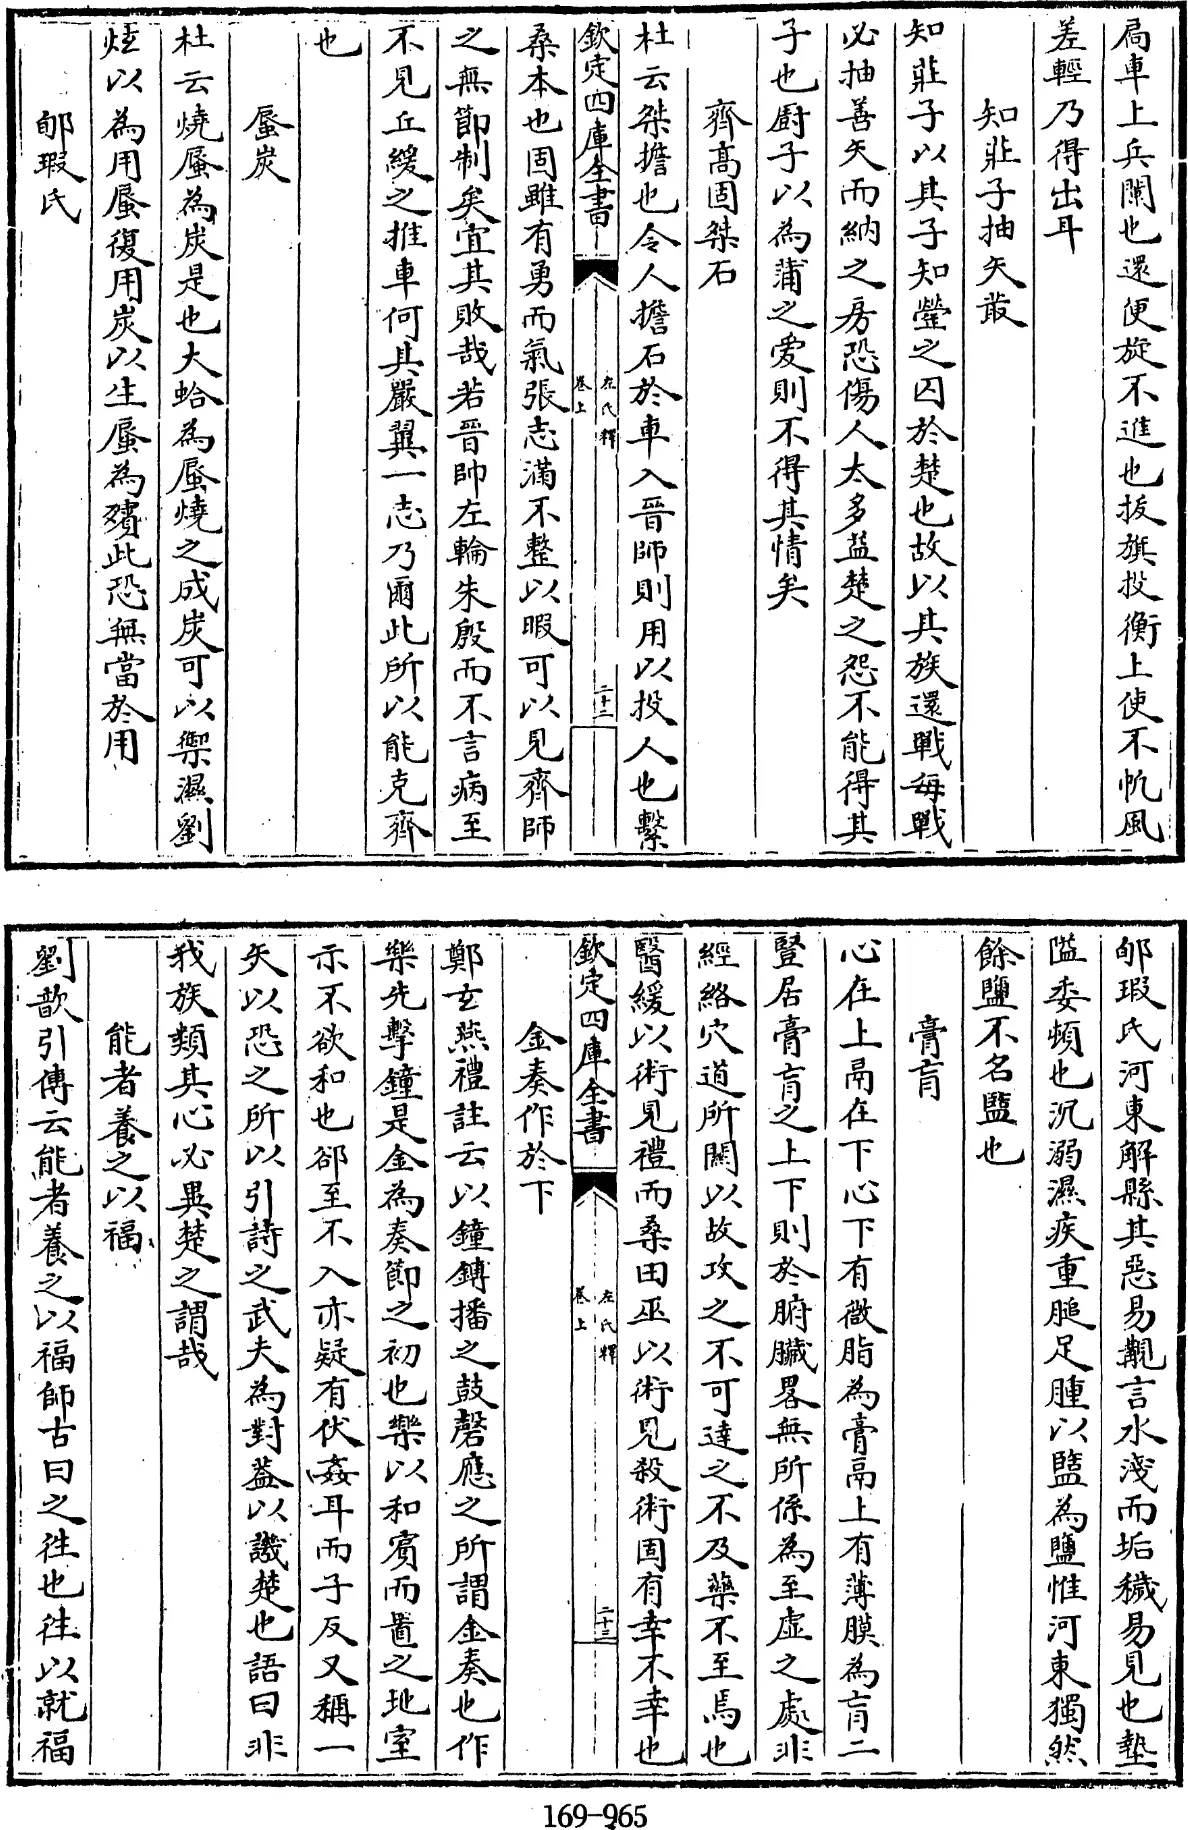 扃車上兵闌也還便旋不進也拔旗投衡上使不帆風
差輕乃得出耳
知莊子抽矢菆
知莊子以其子知罃之囚於楚也故以其族還戰每戰
必抽善矢而納之房恐傷人太多益楚之怨不能得其
子也厨子以為蒲之愛則不得其情矣
齊高固桀石
杜云桀擔也令人擔石於車入晉師則用以投人也繫
欽定四庫全書
左氏釋
卷上
二十二
桑本也固雖有勇而氣張志滿不整以暇可以見齊師
之無節制矣宜其敗哉若晉帥左輪朱殷而不言病至
不見丘緩之推車何其嚴翼一志乃爾此所以能克齊
也
蜃炭
杜云燒蜃為炭是也大蛤為蜃燒之成炭可以禦濕劉
炫以為用蜃復用炭以生蜃為殯此恐無當於用
郇瑕氏
郇瑕氏河東解縣其惡易覯言水淺而垢穢易見也墊
隘委頓也沉溺濕疾重膇足腫以盬為鹽惟河東獨然
餘鹽不名盬也
膏肓
心在上鬲在下心下有微脂為膏鬲上有薄膜為肓二
豎居膏肓之上下則於腑臟畧無所係為至虛之處非
經絡穴道所關以故攻之不可達之不及藥不至焉也
醫緩以術見禮而桑田巫以術見殺術固有幸不幸也
欽定四庫全書
左氏釋
卷上
二十三
金奏作於下
鄭玄燕禮註云以鐘鎛播之鼓磬應之所謂金奏也作
樂先擊鐘是金為奏節之初也樂以和賓而置之地室
示不欲和也郤至不入亦疑有伏姦耳而子反又稱一
矢以恐之所以引詩之武夫為對葢以譏楚也語曰非
我族類其心必異楚之謂哉
能者養之以福
劉歆引傳云能者養之以福師古曰之徃也徃以就福
169-965